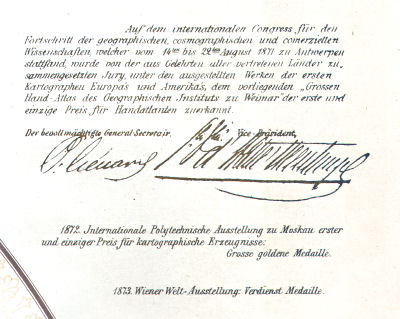 Auf dem internationalen Congress für den
Fortschritt der geographischen, cosmographischen und comerziellen
Wissenschaften, welcher vom 14ten bis 22ten August 1871 zu Antwerpen
stattfand, wurde von der aus Gelehrten aller vertretenen Länder zu„
sammengesetzten Jury, unter den ausgestellten Werken der ersten
Kartographen Europas und Amerikas, dem vorliegenden „Grossen
Hand-Atlas des Geographischen Instituts zu Weimar" der erste und
einzige Preis für Handatlanten zuerkannt.
Der bevollmächtigte General-Secretair. Vice Präsident,
1872. Internationale Polytechnische Ausstellung zu Moskau erster
und einziger Preis für kartographische Erzeugnisse:
Grosse goldene Medaille.
1873. Wiener Welt-Ausstellung: Verdienst Medaille.